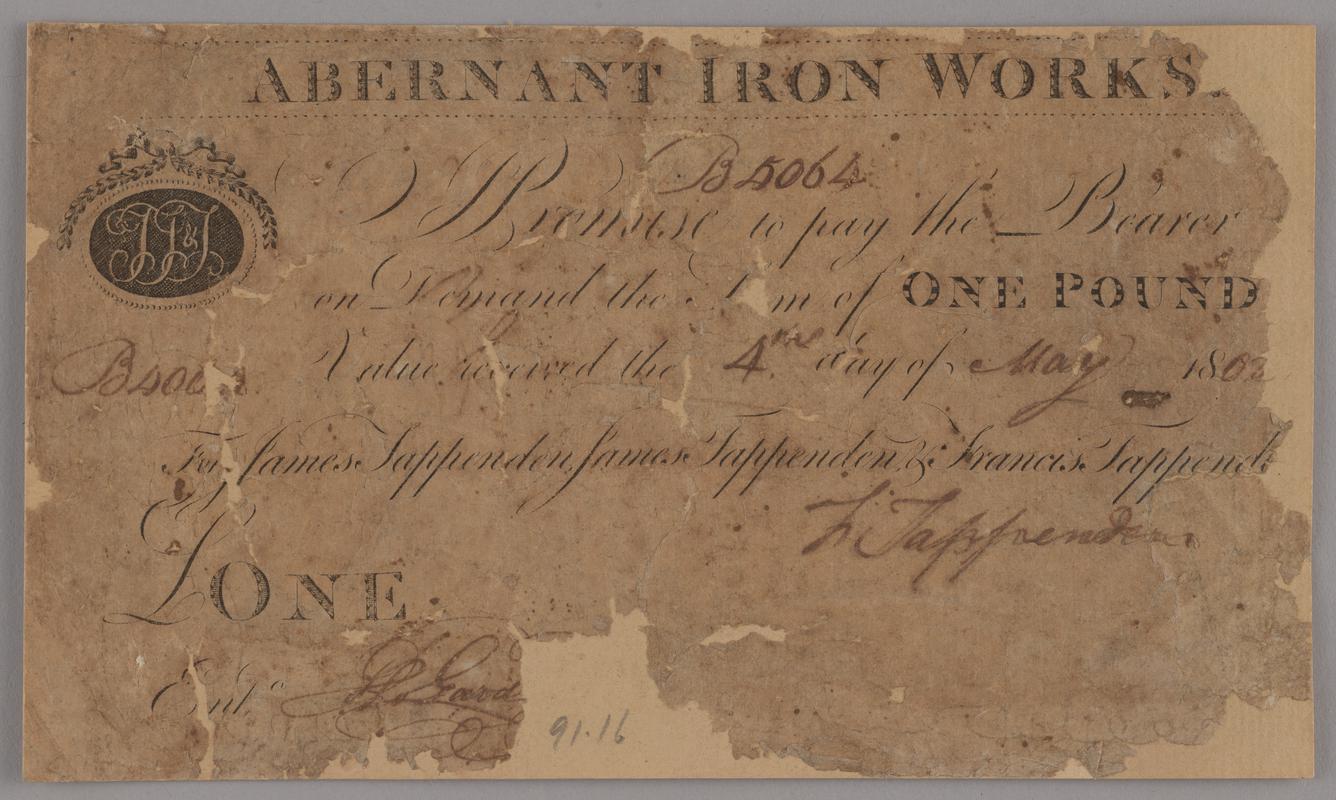 ABERNANT IRON WORKS.
B5064
I Promise to pay the Bearer
on Demand the m of ONE POUND
Value received the 4 day of May 1802
B506
For James Tappenden, James Tappenden & Francis Tappend
F Tappenden
£ONE
Entd
91.16